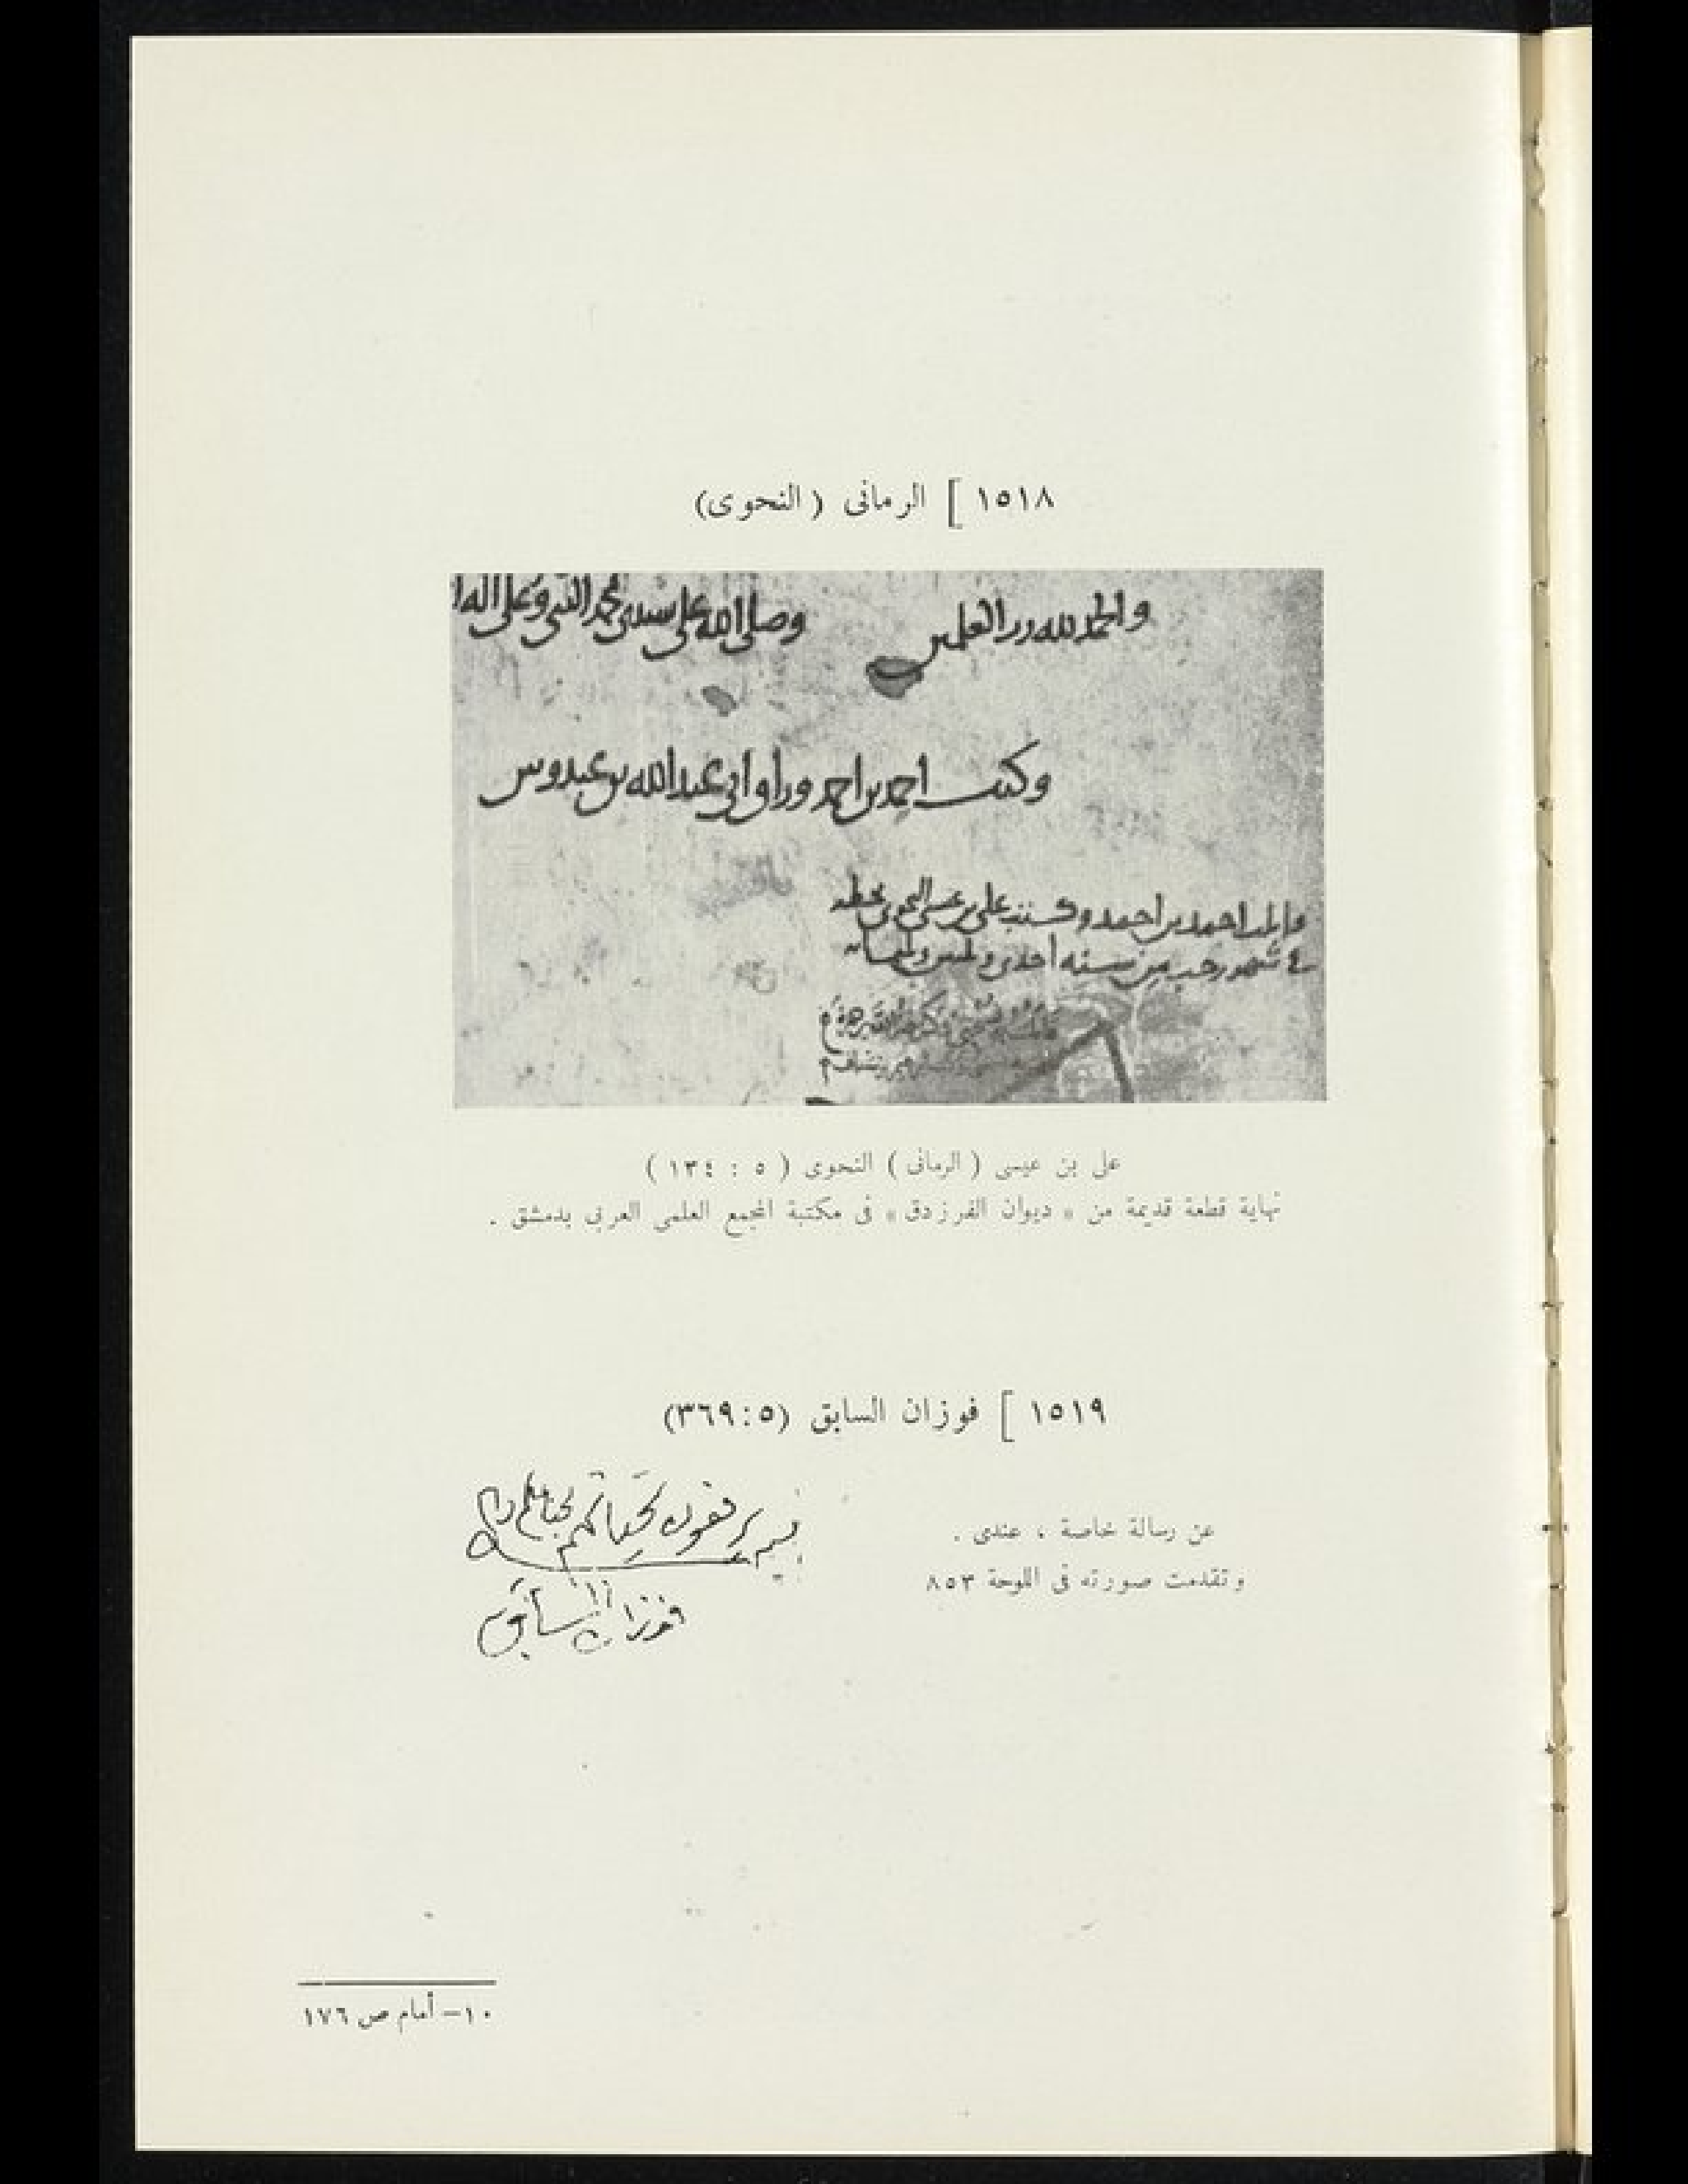 ١٥١٨ ] الرمانى ( النحوى)
والحمد لله رب العلمين وصلى الله على سيدى محمد النبي وعلى اله
وكتب احمد بن احمد وراو ابي عبد الله بن عبدوس
احمد بن احمد وكتب على بن عيسى النحوى بخطه
شهر رجب من سنه احدى
على بن عيسى ( الرمانى ) النحوى ( ٥ : ١٣٤ )
نهاية قطعة قديمة من « ديوان الفرزدق » فى مكتبة المجمع العلمى العربى بدمشق .
١٥١٩ ] فوزان السابق (٥:٣٦٩)
عن رسالة خاصة ، عندى .
وتقدمت صورته فى اللوحة ٨٥٣
فوزان السابق
١٠– أمام ص ١٧٦